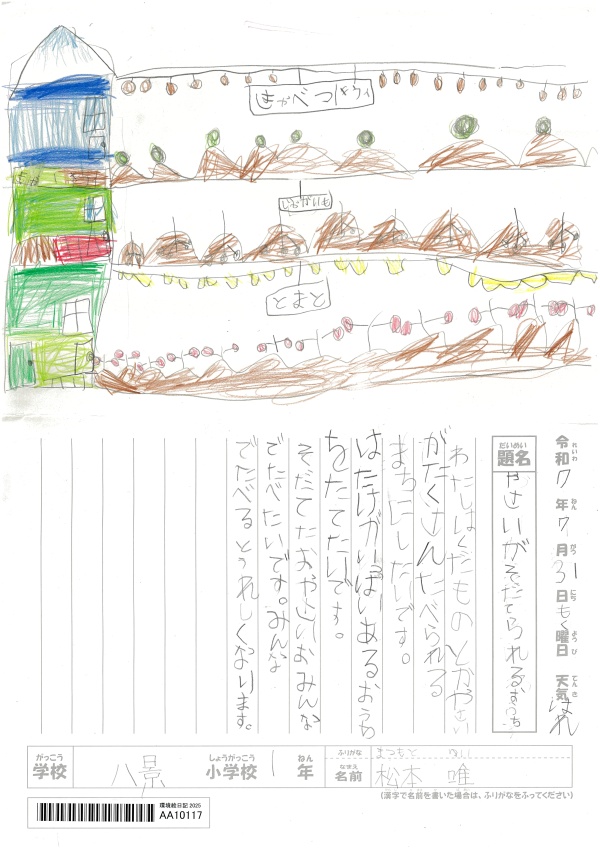 じゃがいも
とまと
令和7年7月31日もく曜日 天気はれ
れいわ ねん がつ にち ようび てんき
だいめい
題名 やさいがそだてられるおうち
わたしはくだものとかやさい
がたくさんたべられる
まちにしたいです。
はたけがいっぱいあるおうち
をたてたいです。
そだてたおやさいおみんな
でたべたいです。みんな
でたべるとうれしくなります。
がっこう しょうがっこう ねん ふりがな まつもと
学校 八景 小学校 1年 なまえ 名前 松本 唯
(漢字で名前を書いた場合は、ふりがなをふってください)
環境絵日記 2025
AA10117